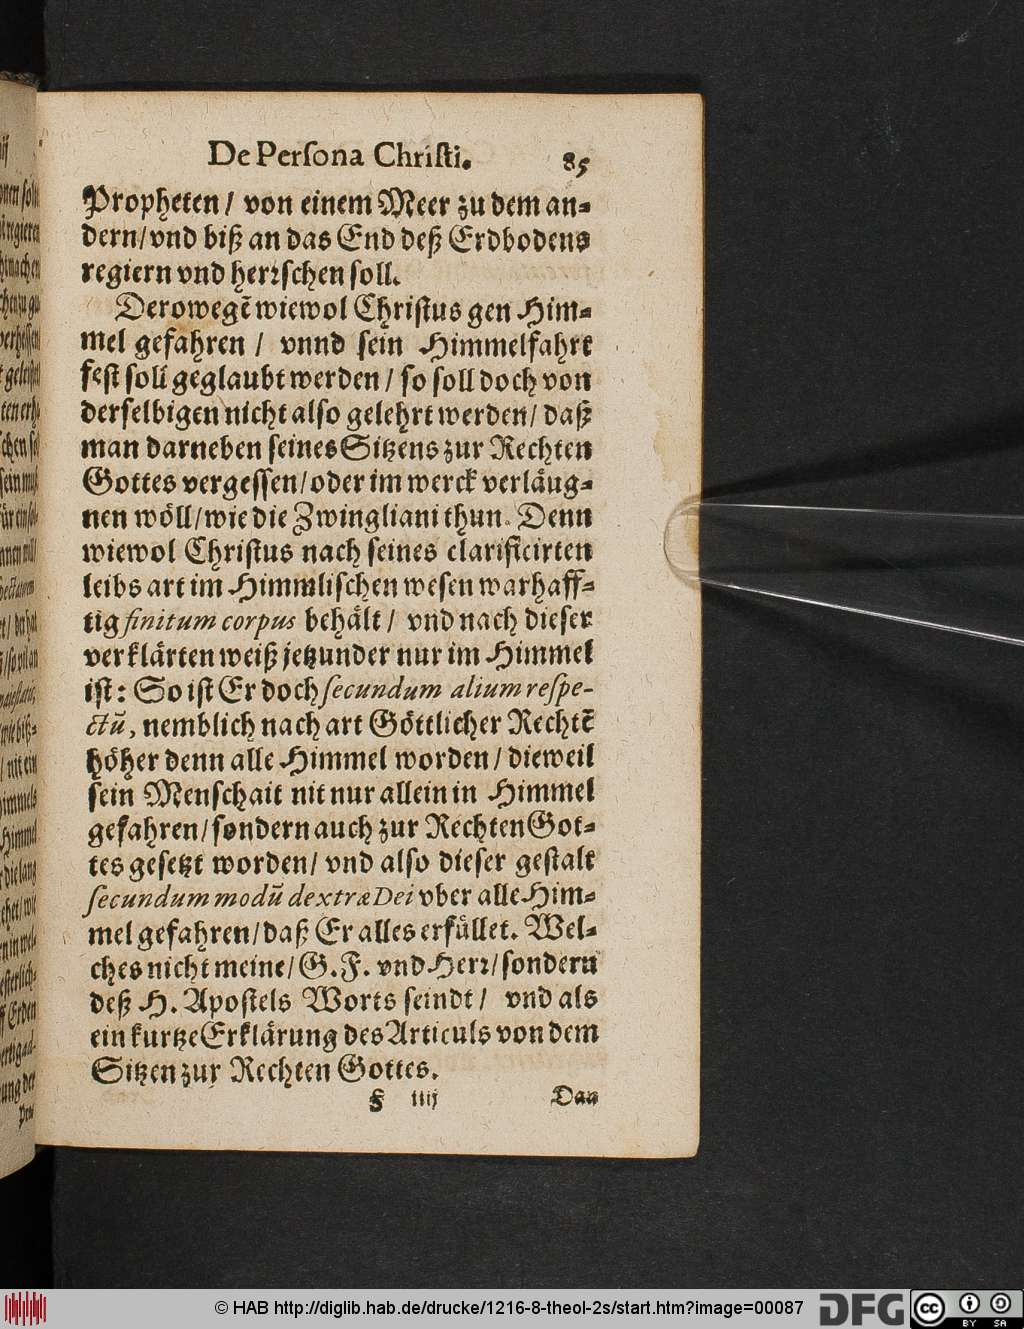 De Persona Christi. 85
Propheten / von einem Meer zu dem an-
dern/vnd biß an das End deß Erdbodens
regiern vnd herꝛschen soll.
Derowegẽ wiewol Christus gen Him-
mel gefahren / vnnd sein Himmelfahrt
fest soll geglaubt werden / so soll doch von
derselbigen nicht also gelehrt werden/ daß
man darneben seines Sitzens zur Rechten
Gottes vergessen/oder im werck verläug-
nen wöll/wie die Zwingliani thun. Denn
wiewol Christus nach seines clarificirten
leibs art im Himmlischen wesen warhaff-
tig finitum corpus behält / vnd nach dieser
verklärten weiß jetzunder nur im Himmel
ist: So ist Er doch secundum alium respe-
ctũ, nemblich nach art Göttlicher Rechtẽ
höher denn alle Himmel worden / dieweil
sein Menschait nit nur allein in Himmel
gefahren/sondern auch zur Rechten Got-
tes gesetzt worden/ vnd also dieser gestalt
secundum modũ dextræ Dei vber alle Him-
mel gefahren/daß Er alles erfüllet. Wel-
ches nicht meine/ G. F. vnd Herꝛ/sondern
deß H. Apostels Worts seindt / vnd als
ein kurtze Erklärung des Articuls von dem
Sitzen zur Rechten Gottes.
F iiij Dan
© HAB http://diglib.hab.de/drucke/1216-8-theol-2s/start.htm?image=00087 DFG cc BY SA